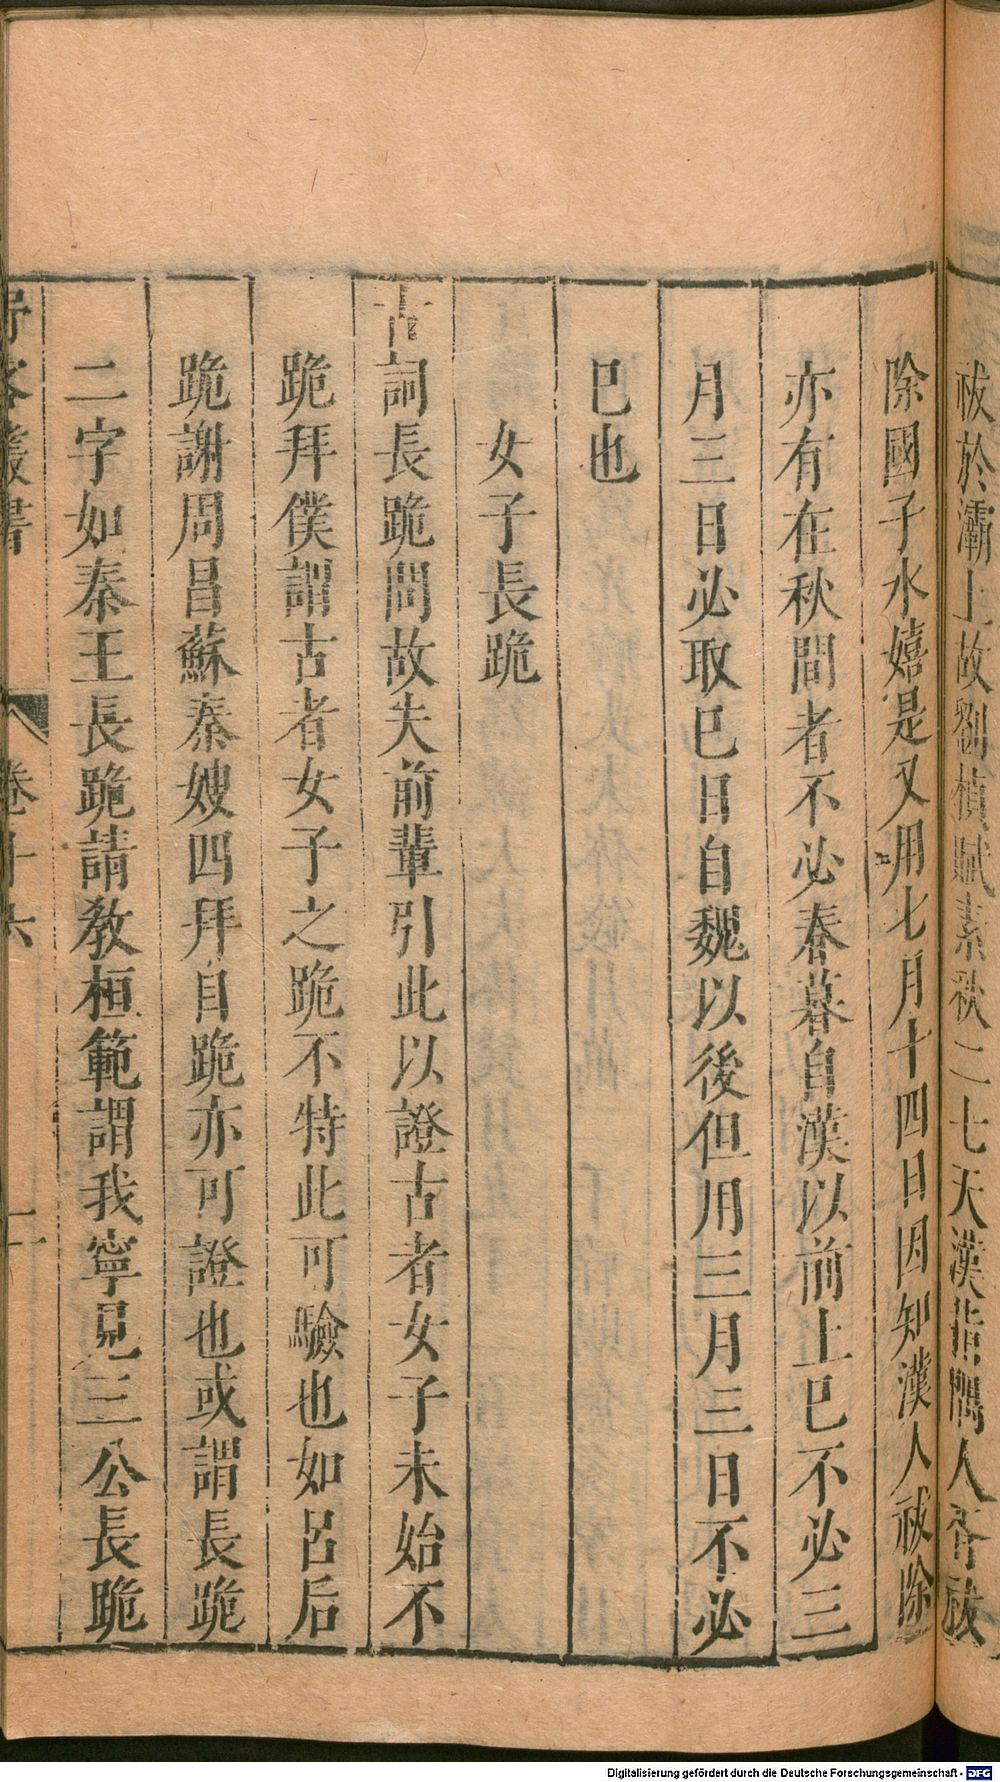 祓於灞上故劉楨賦素秋二七天漢指隅人胥祓
除國子水嬉是又用七月十四日因知漢人祓除
亦有在秋間者不必春暮自漢以前上巳不必三
月三日必取巳日自魏以後但用三月三日不必
巳也
女子長跪
古詞長跪問故夫前輩引此以證古者女子未始不
跪拜僕謂古者女子之跪不特此可驗也如呂后
跪謝周昌蘇秦嫂四拜自跪亦可證也或謂長跪
二字如秦王長跪請教桓範謂我寧見三公長跪
野客叢書 卷十六 二
Digitalisierung gefördert durch die Deutsche Forschungsgemeinschaft - DFG